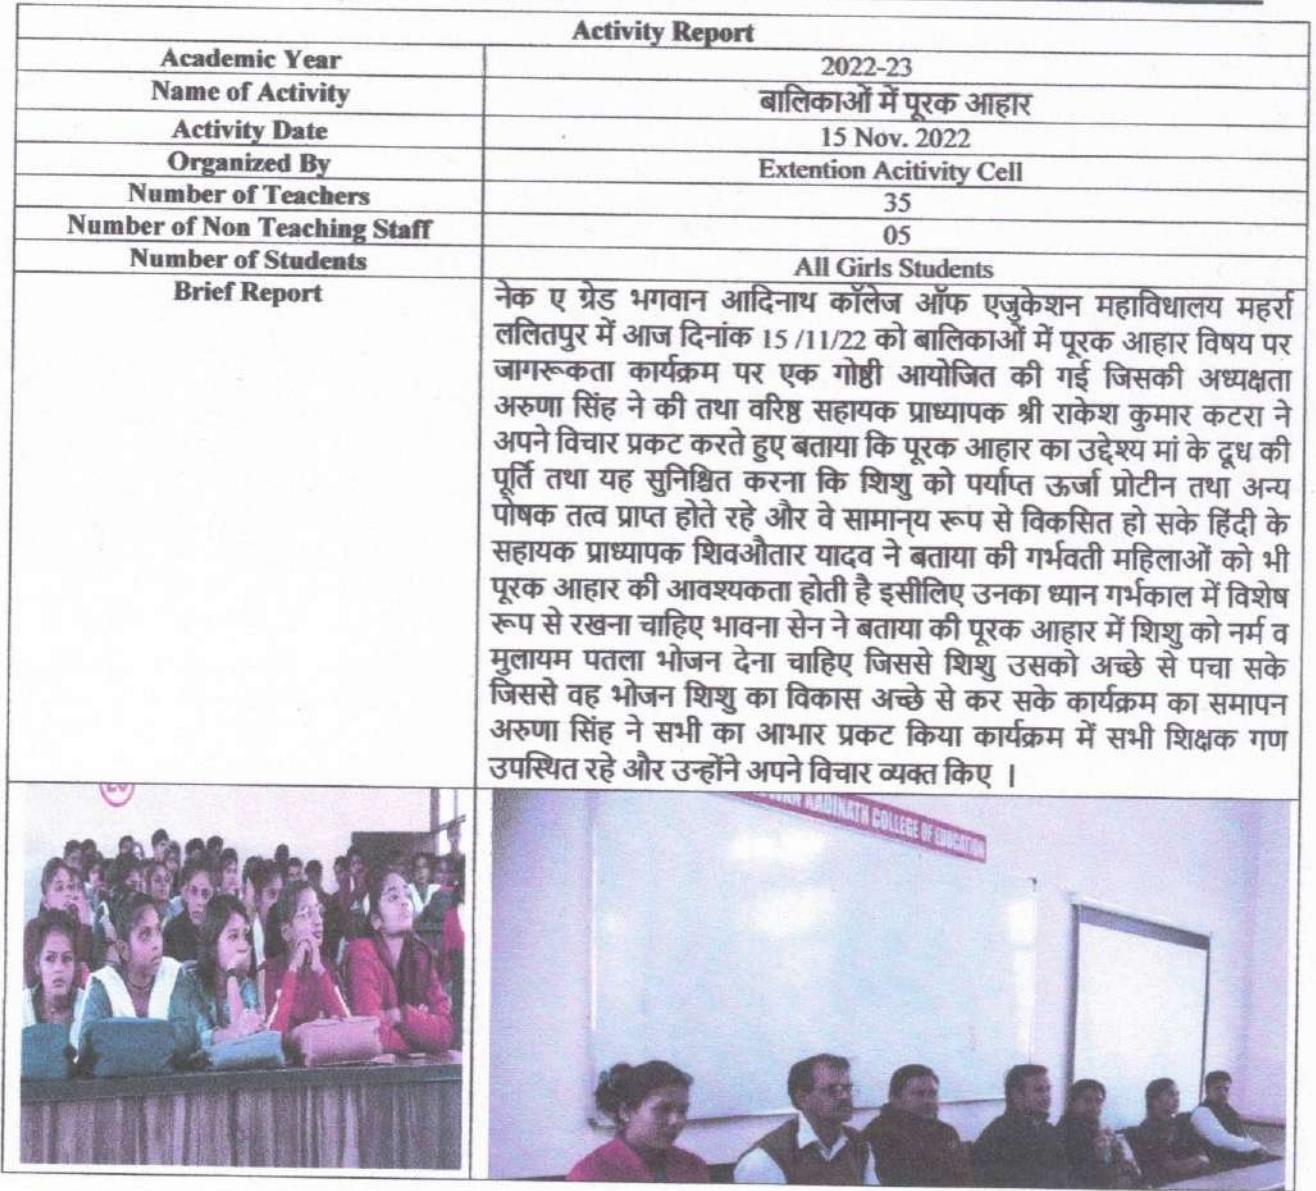 Activity Report
Academic Year 2022-23
Name of Activity बालिकाओं में पूरक आहार
Activity Date 15 Nov. 2022
Organized By Extention Acitivity Cell
Number of Teachers 35
Number of Non Teaching Staff 05
Number of Students All Girls Students
Brief Report नेक ए ग्रेड भगवान आदिनाथ कॉलेज ऑफ एजुकेशन महाविधालय महर्रा
ललितपुर में आज दिनांक 15 /11/22 को बालिकाओं में पूरक आहार विषय पर
जागरूकता कार्यक्रम पर एक गोष्ठी आयोजित की गई जिसकी अध्यक्षता
अरुणा सिंह ने की तथा वरिष्ठ सहायक प्राध्यापक श्री राकेश कुमार कटरा ने
अपने विचार प्रकट करते हुए बताया कि पूरक आहार का उद्देश्य मां के दूध की
पूर्ति तथा यह सुनिश्चित करना कि शिशु को पर्याप्त ऊर्जा प्रोटीन तथा अन्य
पोषक तत्व प्राप्त होते रहे और वे सामान्य रूप से विकसित हो सके हिंदी के
सहायक प्राध्यापक शिवऔतार यादव ने बताया की गर्भवती महिलाओं को भी
पूरक आहार की आवश्यकता होती है इसीलिए उनका ध्यान गर्भकाल में विशेष
रूप से रखना चाहिए भावना सेन ने बताया की पूरक आहार में शिशु को नर्म व
मुलायम पतला भोजन देना चाहिए जिससे शिशु उसको अच्छे से पचा सके
जिससे वह भोजन शिशु का विकास अच्छे से कर सके कार्यक्रम का समापन
अरुणा सिंह ने सभी का आभार प्रकट किया कार्यक्रम में सभी शिक्षक गण
उपस्थित रहे और उन्होंने अपने विचार व्यक्त किए ।
AADINATH COLLEGE OF EDUCATION